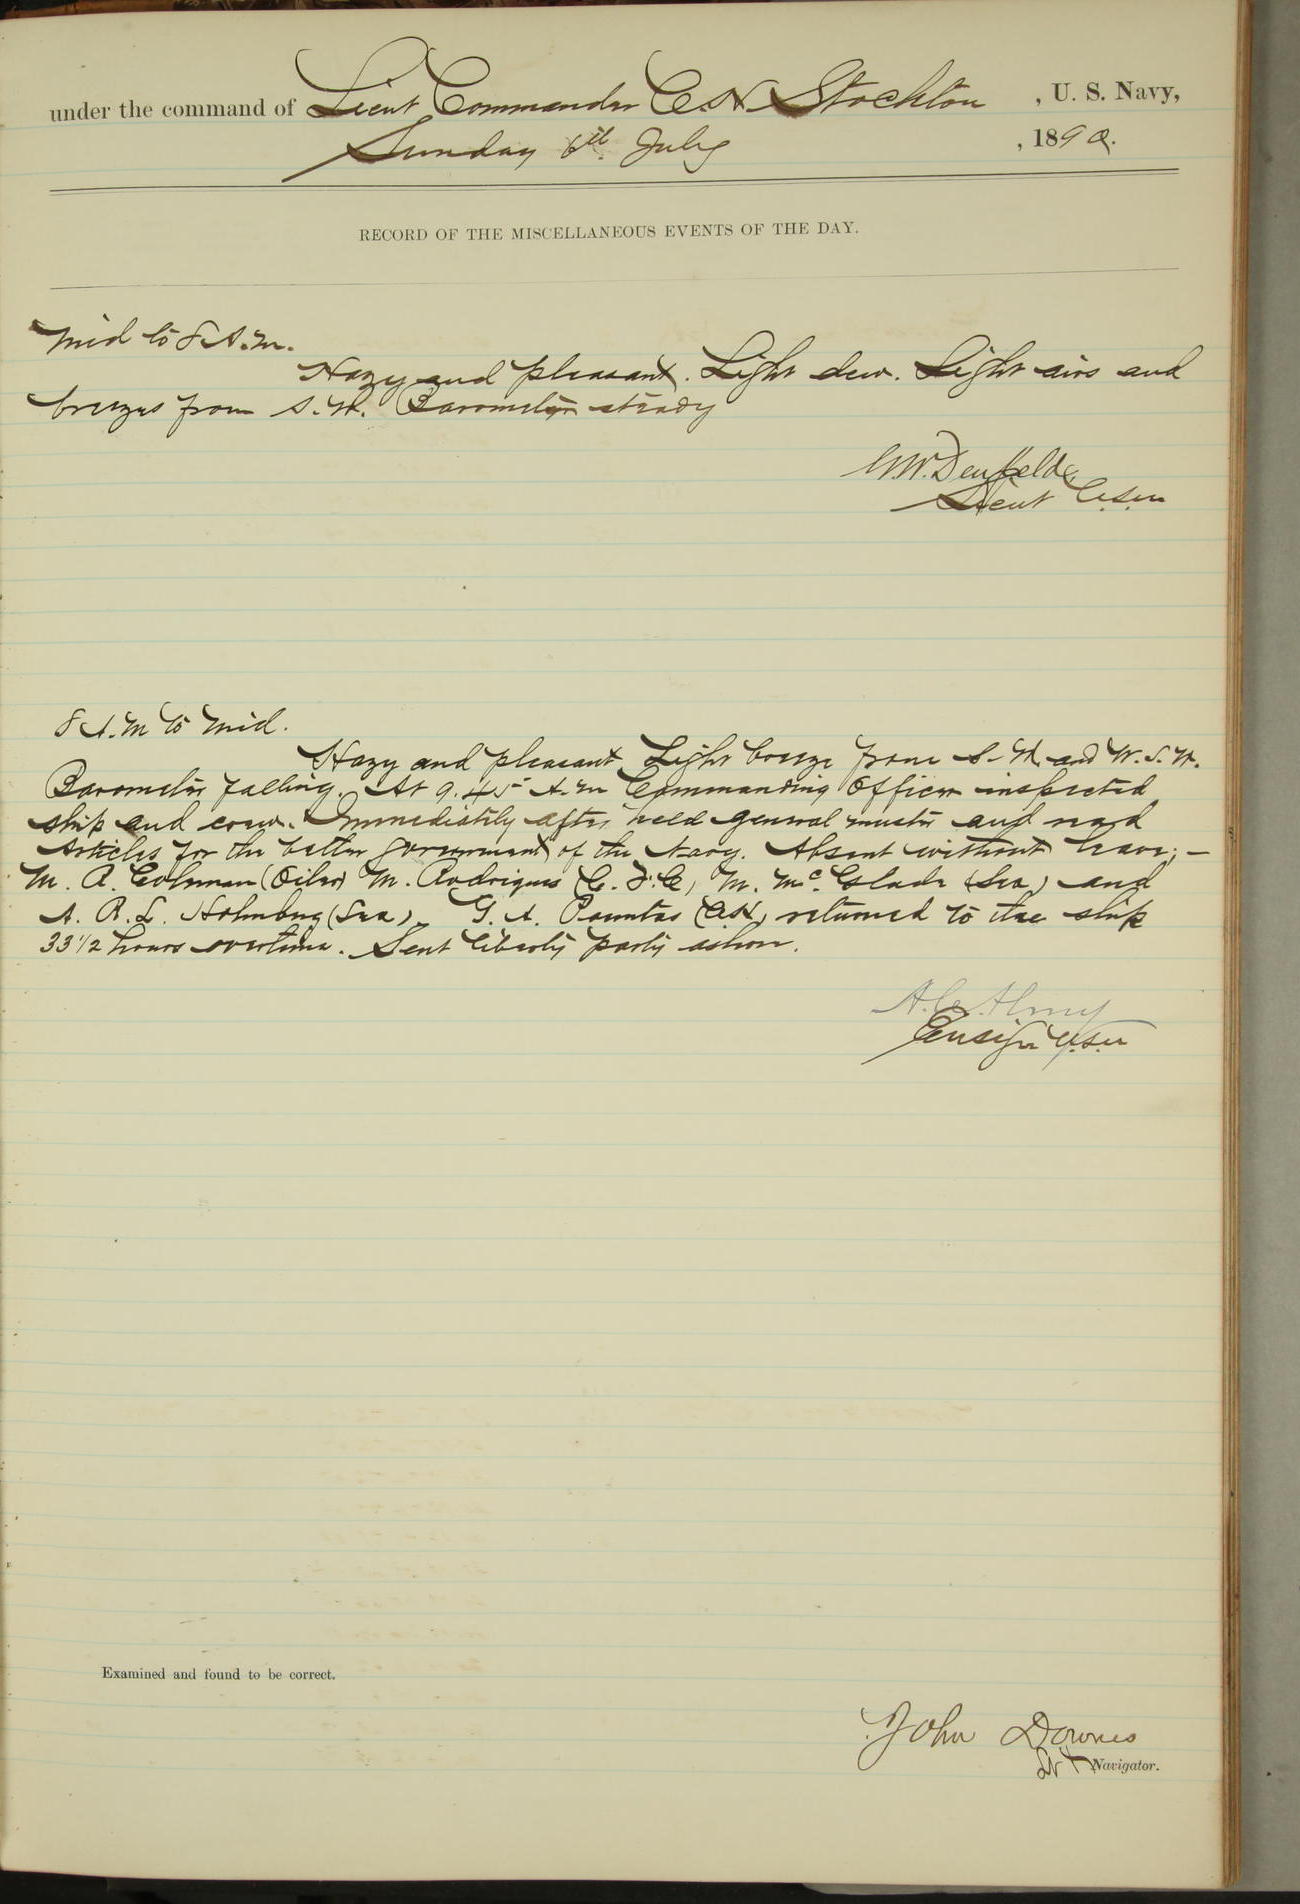 under the command of Lieut Commander C. H. Stockton , U. S. Navy,
Sunday 6th July , 1890.
RECORD OF THE MISCELLANEOUS EVENTS OF THE DAY.
Mid to 8 A.M.
Hazy and pleasant. Light dew. Light airs and
breezes from S.W. Barometer steady
Lieut U.S.N
8 A.M to Mid.
Hazy and pleasant Light breeze from S.W. and W.S.W.
Barometer falling. At 9.45 A.M Commanding Officer inspected
ship and crew. Immediately after held general muster and read
Articles for the better government of the Navy. Absent without leave; –
M. A. Colman (Oiler) M. Rodrigues M. McGlade (Sea) and
A. R. L. Holmberg (Sea). G. A. returned to the ship
33 1/2 hours overtime. Sent liberty party ashore.
A. C. Almy
Ensign U.S.N
Examined and found to be correct.
John Downes
Lt & Navigator.